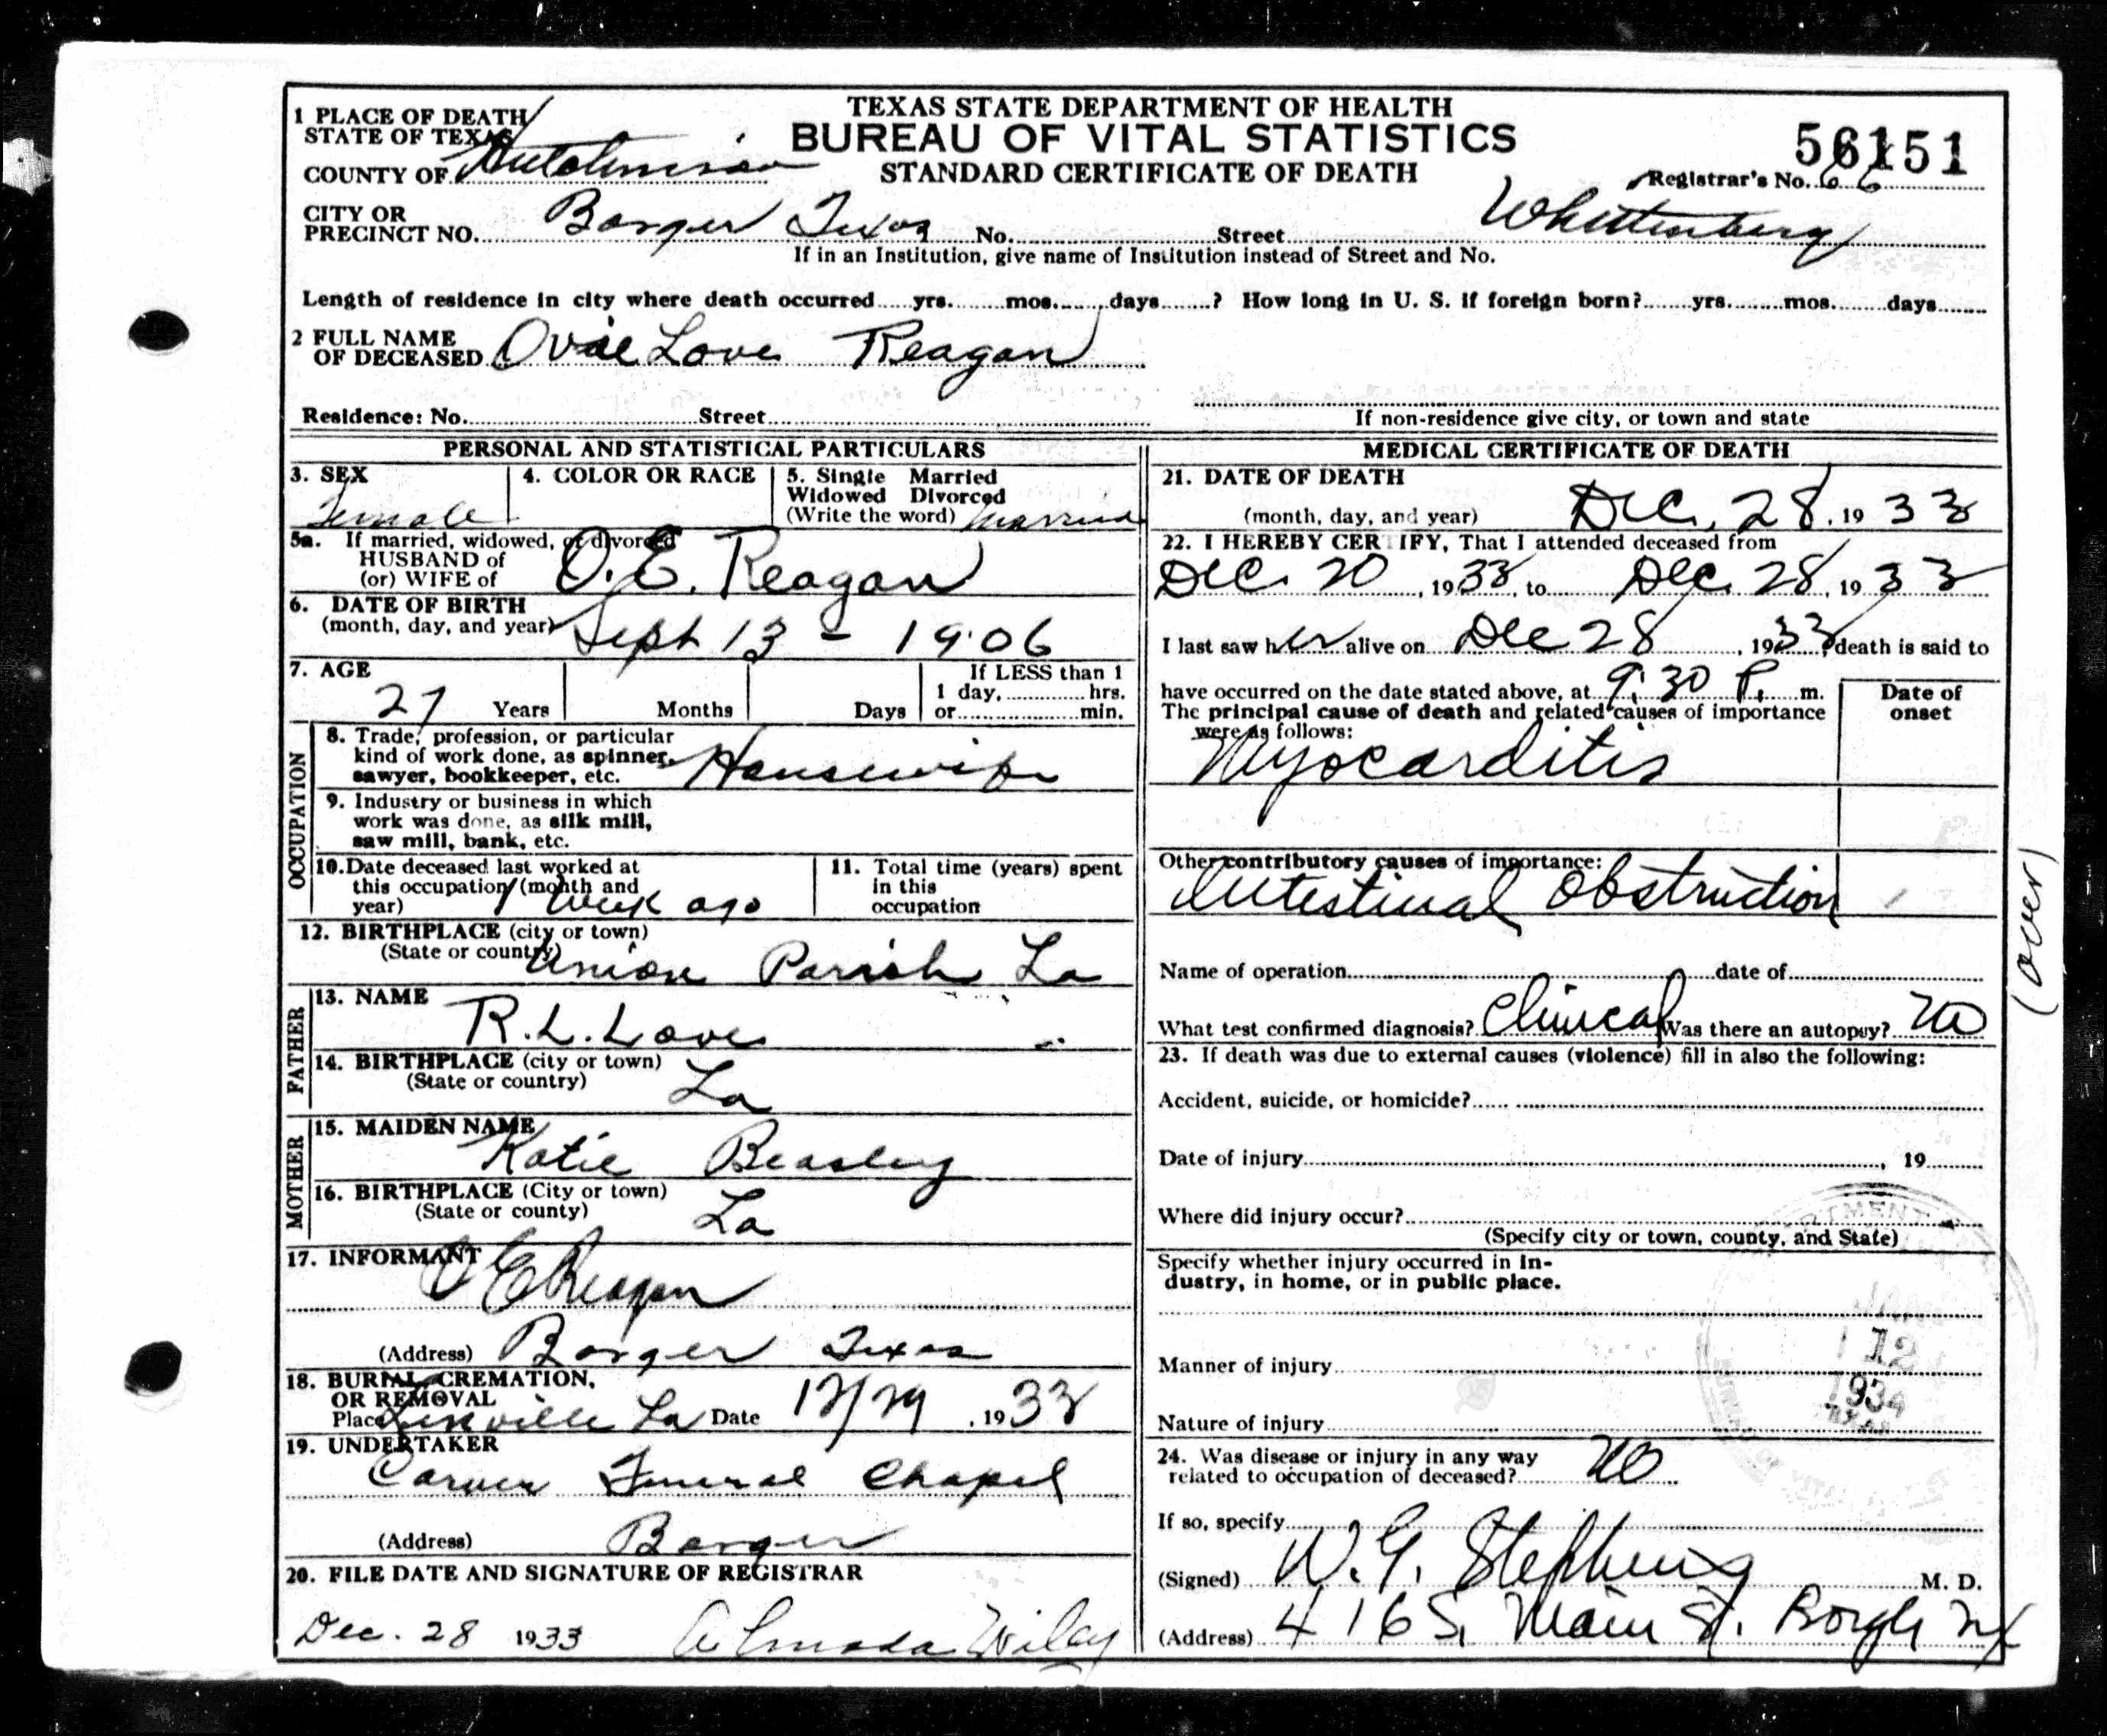 TEXAS STATE DEPARTMENT OF HEALTH
BUREAU OF VITAL STATISTICS
STANDARD CERTIFICATE OF DEATH
56151
Registrar's No. 66
1 PLACE OF DEATH
STATE OF TEXAS
COUNTY OF Hutchinson
CITY OR PRECINCT NO. Borger Texas No. Street Whittenberg
If in an Institution, give name of Institution instead of Street and No.
Length of residence in city where death occurred yrs. mos. days ? How long in U. S. if foreign born? yrs. mos. days
2 FULL NAME OF DECEASED Ovie Love Reagan
Residence: No. Street
If non-residence give city, or town and state
PERSONAL AND STATISTICAL PARTICULARS
3. SEX Female
4. COLOR OR RACE
5. Single Married
Widowed Divorced
(Write the word) Married
5a. If married, widowed, or divorced
HUSBAND of
(or) WIFE of O. E. Reagan
6. DATE OF BIRTH
(month, day, and year) Sept 13 - 1906
7. AGE
27 Years Months Days
If LESS than 1
1 day, hrs.
or min.
OCCUPATION
8. Trade, profession, or particular
kind of work done, as spinner,
sawyer, bookkeeper, etc. Housewife
9. Industry or business in which
work was done, as silk mill,
saw mill, bank, etc.
10. Date deceased last worked at
this occupation (month and
year) 1 week ago
11. Total time (years) spent
in this
occupation
12. BIRTHPLACE (city or town)
(State or country) Union Parish La
FATHER
13. NAME R. L. Love
14. BIRTHPLACE (city or town)
(State or country) La
MOTHER
15. MAIDEN NAME Katie Beasley
16. BIRTHPLACE (City or town)
(State or county) La
17. INFORMANT O E Reagan
(Address) Borger Texas
18. BURIAL, CREMATION,
OR REMOVAL
Place Linville La Date 12/29, 1933
19. UNDERTAKER
Carver Funeral Chapel
(Address) Borger
20. FILE DATE AND SIGNATURE OF REGISTRAR
Dec. 28 1933 Almada Wiley
MEDICAL CERTIFICATE OF DEATH
21. DATE OF DEATH
(month, day, and year) Dec. 28, 1933
22. I HEREBY CERTIFY, That I attended deceased from
Dec. 20, 1933, to Dec. 28, 1933
I last saw her alive on Dec 28, 1933, death is said to
have occurred on the date stated above, at 9:30 P. m.
The principal cause of death and related causes of importance
were as follows:
Date of
onset
Myocarditis
Other contributory causes of importance:
Intestinal Obstruction
Name of operation date of
What test confirmed diagnosis? Clinical Was there an autopsy? no
23. If death was due to external causes (violence) fill in also the following:
Accident, suicide, or homicide?
Date of injury , 19
Where did injury occur?
(Specify city or town, county, and State)
Specify whether injury occurred in in-
dustry, in home, or in public place.
Manner of injury
Nature of injury
24. Was disease or injury in any way
related to occupation of deceased? no
If so, specify
(Signed) W. G. Stephens M. D.
(Address) 416 S. Main St.
(over)
JAN
12
1934